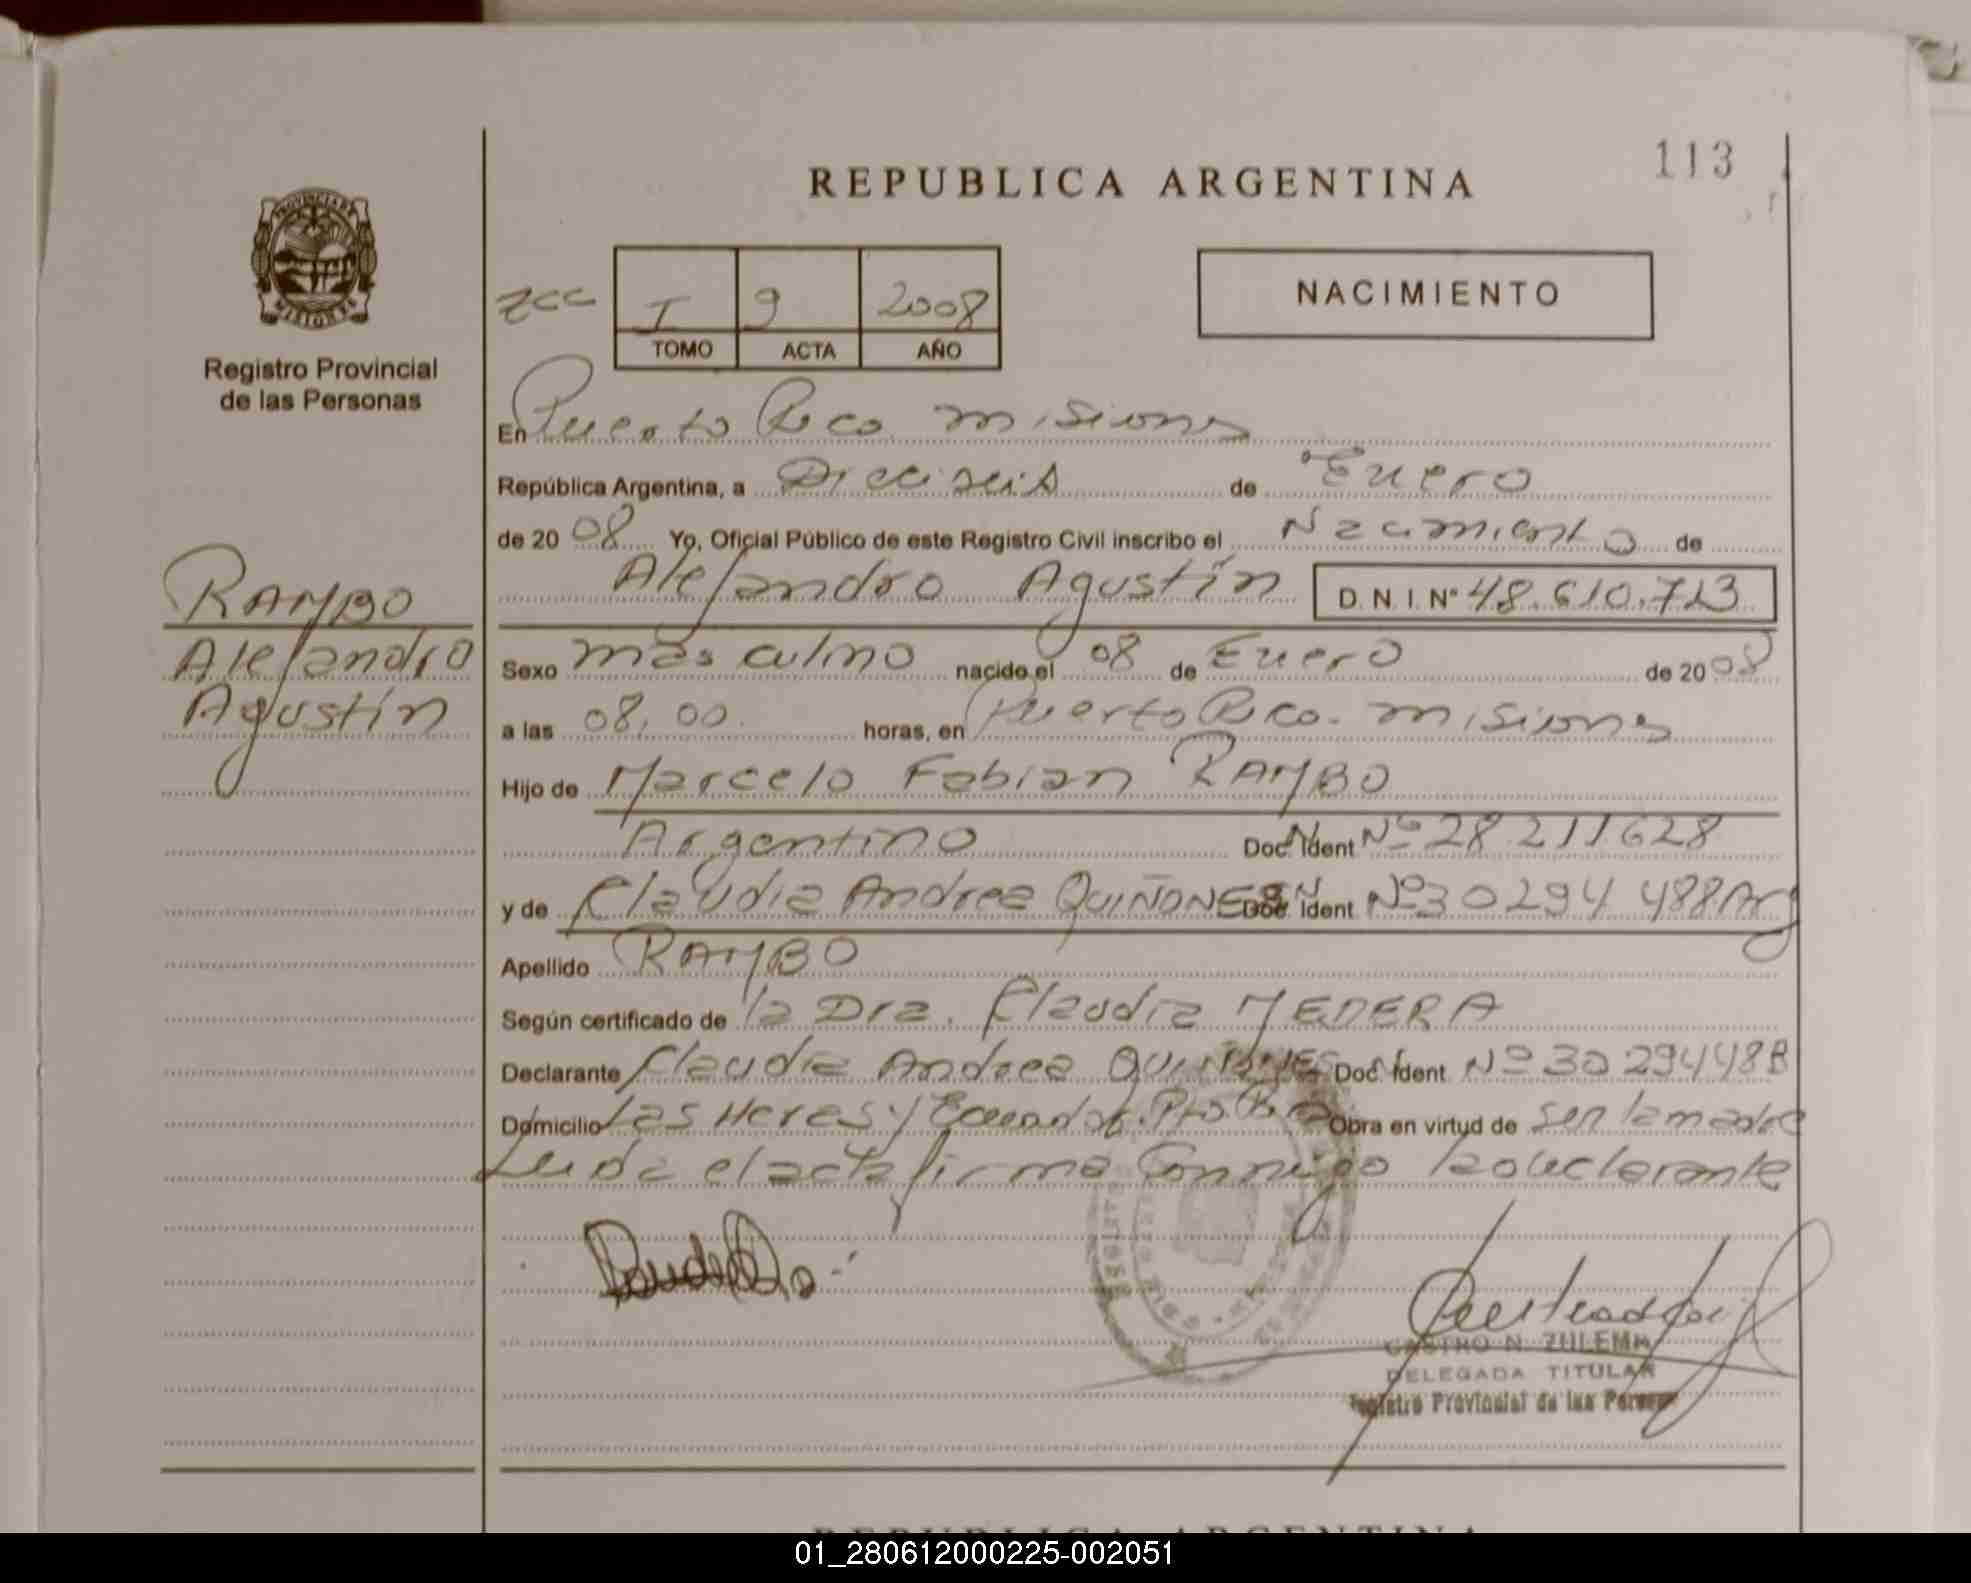 REPUBLICA ARGENTINA
113
PROVINCIA DE
MISIONES
Registro Provincial
de las Personas
I 9 2008
TOMO ACTA AÑO
NACIMIENTO
En Puerto Rico Misiones
República Argentina, a Dieciseis de Enero
de 2008 Yo, Oficial Público de este Registro Civil inscribo el Nacimiento de
Alejandro Agustín D.N.I. Nº 48.610.713
RAMBO
Alejandro
Agustín
Sexo masculino nacido el 08 de Enero de 2008
a las 08,00. horas, en Puerto Rico. Misiones
Hijo de Marcelo Fabian RAMBO
Argentino Doc. Ident Nº 28 211628
y de Claudia Andrea QUIÑONES Doc. Ident Nº 30294 488 Arg
Apellido RAMBO
Según certificado de la Dra. Claudia MEDERA
Declarante Claudia Andrea QUIÑONES Doc. Ident Nº 30 294488
Domicilio Las Heras y Ecuador. Pto. Rico Obra en virtud de ser la madre
Leida el acta firma Conmigo la declarante
CASTRO N. ZULEMA
DELEGADA TITULAR
Registro Provincial de las Personas
REPUBLICA ARGENTINA
01_280612000225-002051